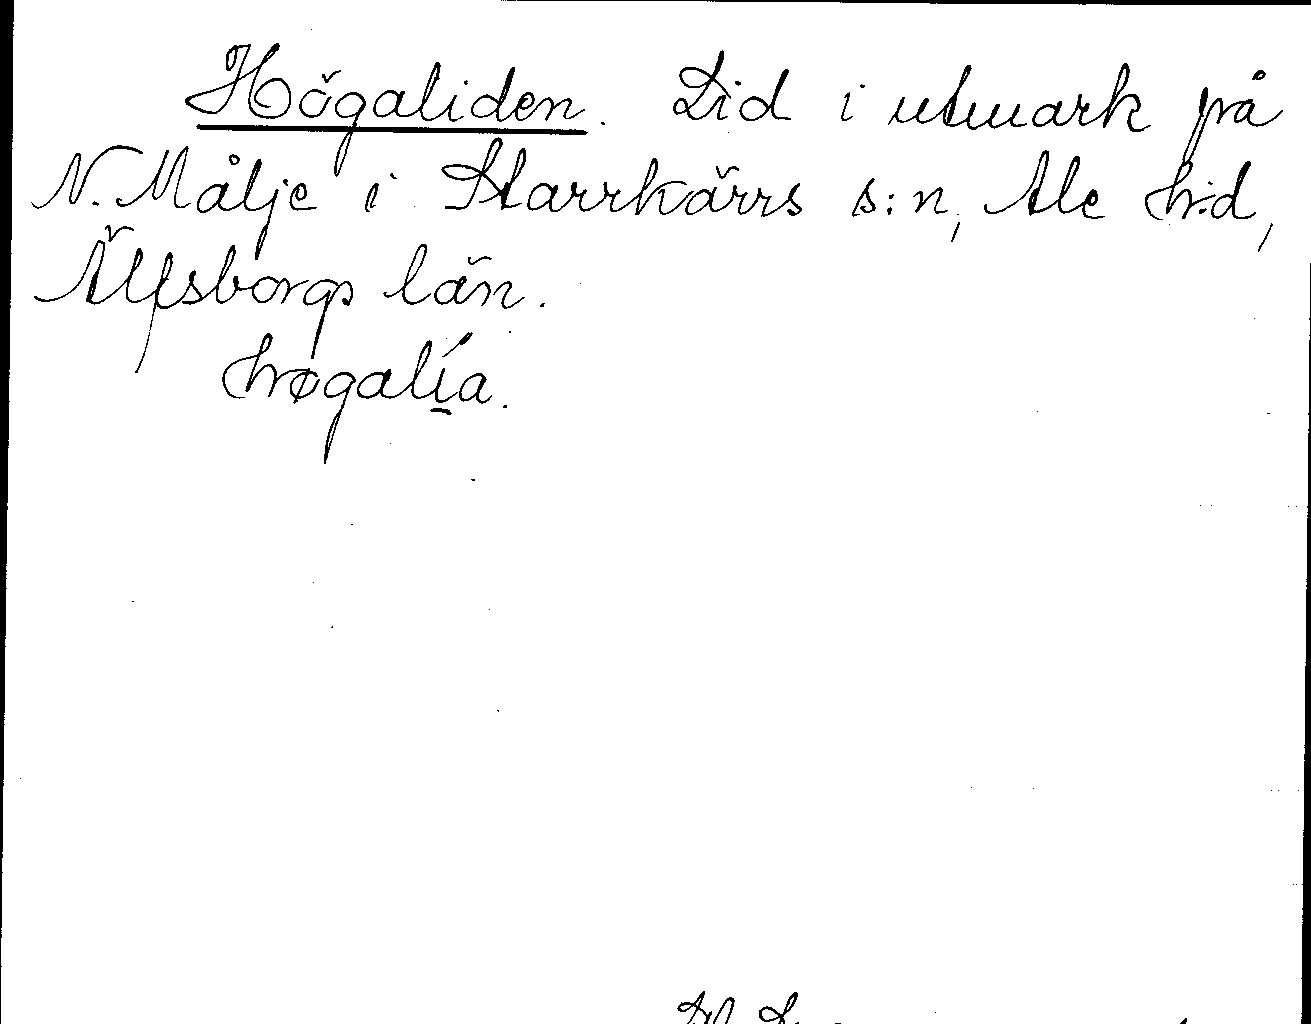 Högaliden. Lid i utmark på
N. Målje i Starrkärrs s:n, Ale h:d,
Älfsborgs län.
høgalía.